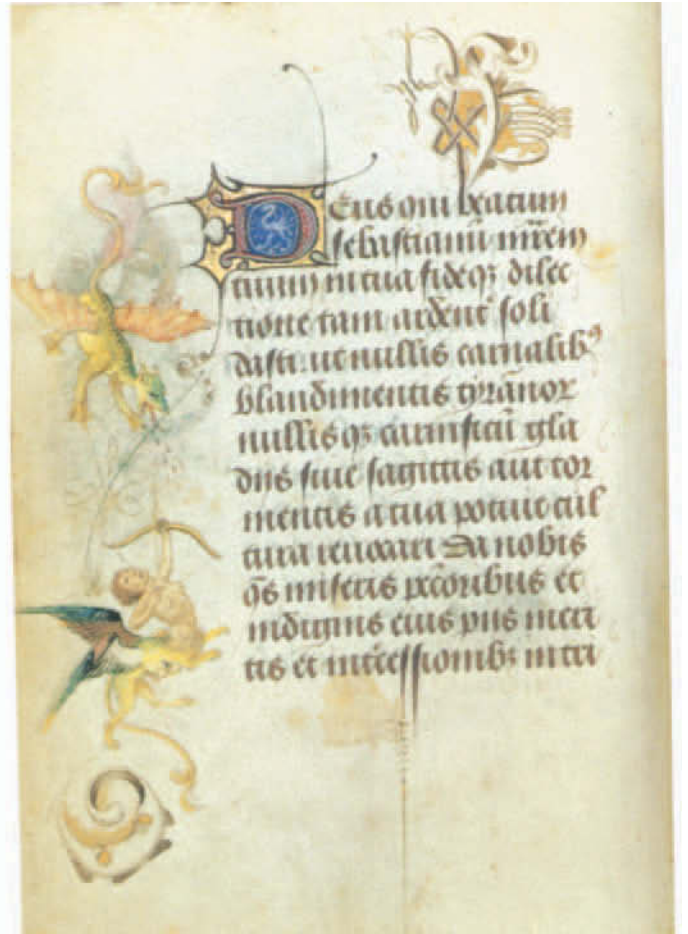 Deus qui beatum
sebastianū mr̄em
tuum in tua fide q; dilec
tione tam ardent̄ soli
dasti. ut nullis carnalib9
blandimentis tyrānor
nullis q; carnificū gla
diis siue sagittis aut tor
mentis a tua potuit cul
tura reuocari Da nobis
q̄s miseris pc̄coribus et
indignis eius piis meri
tis et int̄cessionib; in tri